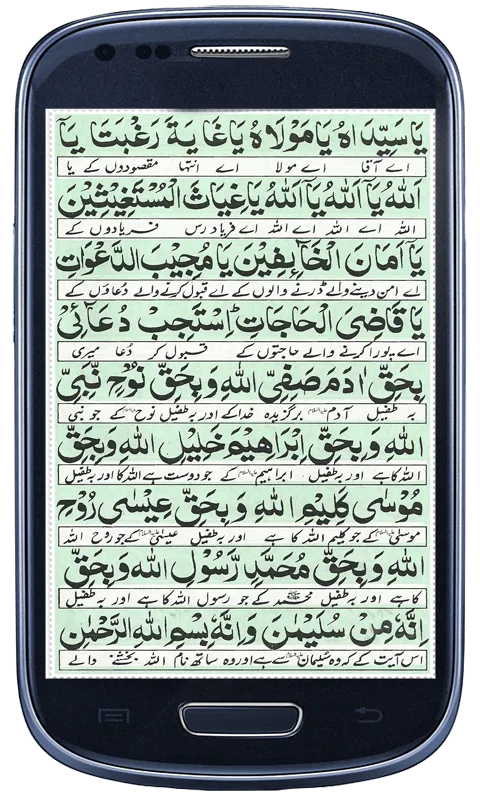 يَا سَيِّدَاهُ يَا مَوْلَاهُ يَا غَايَةَ رَغْبَتَا يَآ
اے آقا اے مولا اے انتہا مقصودوں کے یا
اَللهُ يَآ اَللهُ يَآ اَللهُ يَا غِيَاثَ الْمُسْتَغِيْثِيْنَ
اللہ اے اللہ اے اللہ اے فریاد رس فریادوں کے
يَآ اَمَانَ الْخَآئِفِيْنَ يَا مُجِيْبَ الدَّعْوَاتِ
اے امن دینے والے ڈرنے والوں کے اے قبول کرنے والے دعاؤں کے
يَا قَاضِىَ الْحَاجَاتِ اِسْتَجِبْ دُعَآئِىْ
اے پورا کرنے والے حاجتوں کے قبول کر دُعا میری
بِحَقِّ اٰدَمَ صَفِىِّ اللهِ وَبِحَقِّ نُوْحٍ نَّبِىِّ
بہ طفیل آدم علیہ السلام برگزیدہ خدا کے اور بہ طفیل نوح علیہ السلام کے جو نبی
اللهِ وَبِحَقِّ اِبْرَاهِيْمَ خَلِيْلِ اللهِ وَبِحَقِّ
اللہ کا ہے اور بہ طفیل ابراہیم علیہ السلام کے جو دوست ہے اللہ کا اور بہ طفیل
مُوْسٰى كَلِيْمِ اللهِ وَبِحَقِّ عِيْسٰى رُوْحِ
موسیٰ علیہ السلام کے جو کلیم اللہ کا ہے اور بہ طفیل عیسیٰ علیہ السلام کے جو روح اللہ
اللهِ وَبِحَقِّ مُحَمَّدٍ رَّسُوْلِ اللهِ وَبِحَقِّ
کا ہے اور بہ طفیل محمد ﷺ کے جو رسول اللہ کا ہے اور بہ طفیل
اِنَّهٗ مِنْ سُلَيْمٰنَ وَاِنَّهٗ بِسْمِ اللهِ الرَّحْمٰنِ
اس آیت کے کہ وہ سلیمان علیہ السلام سے ہے اور وہ ساتھ نام اللہ بخشنے والے